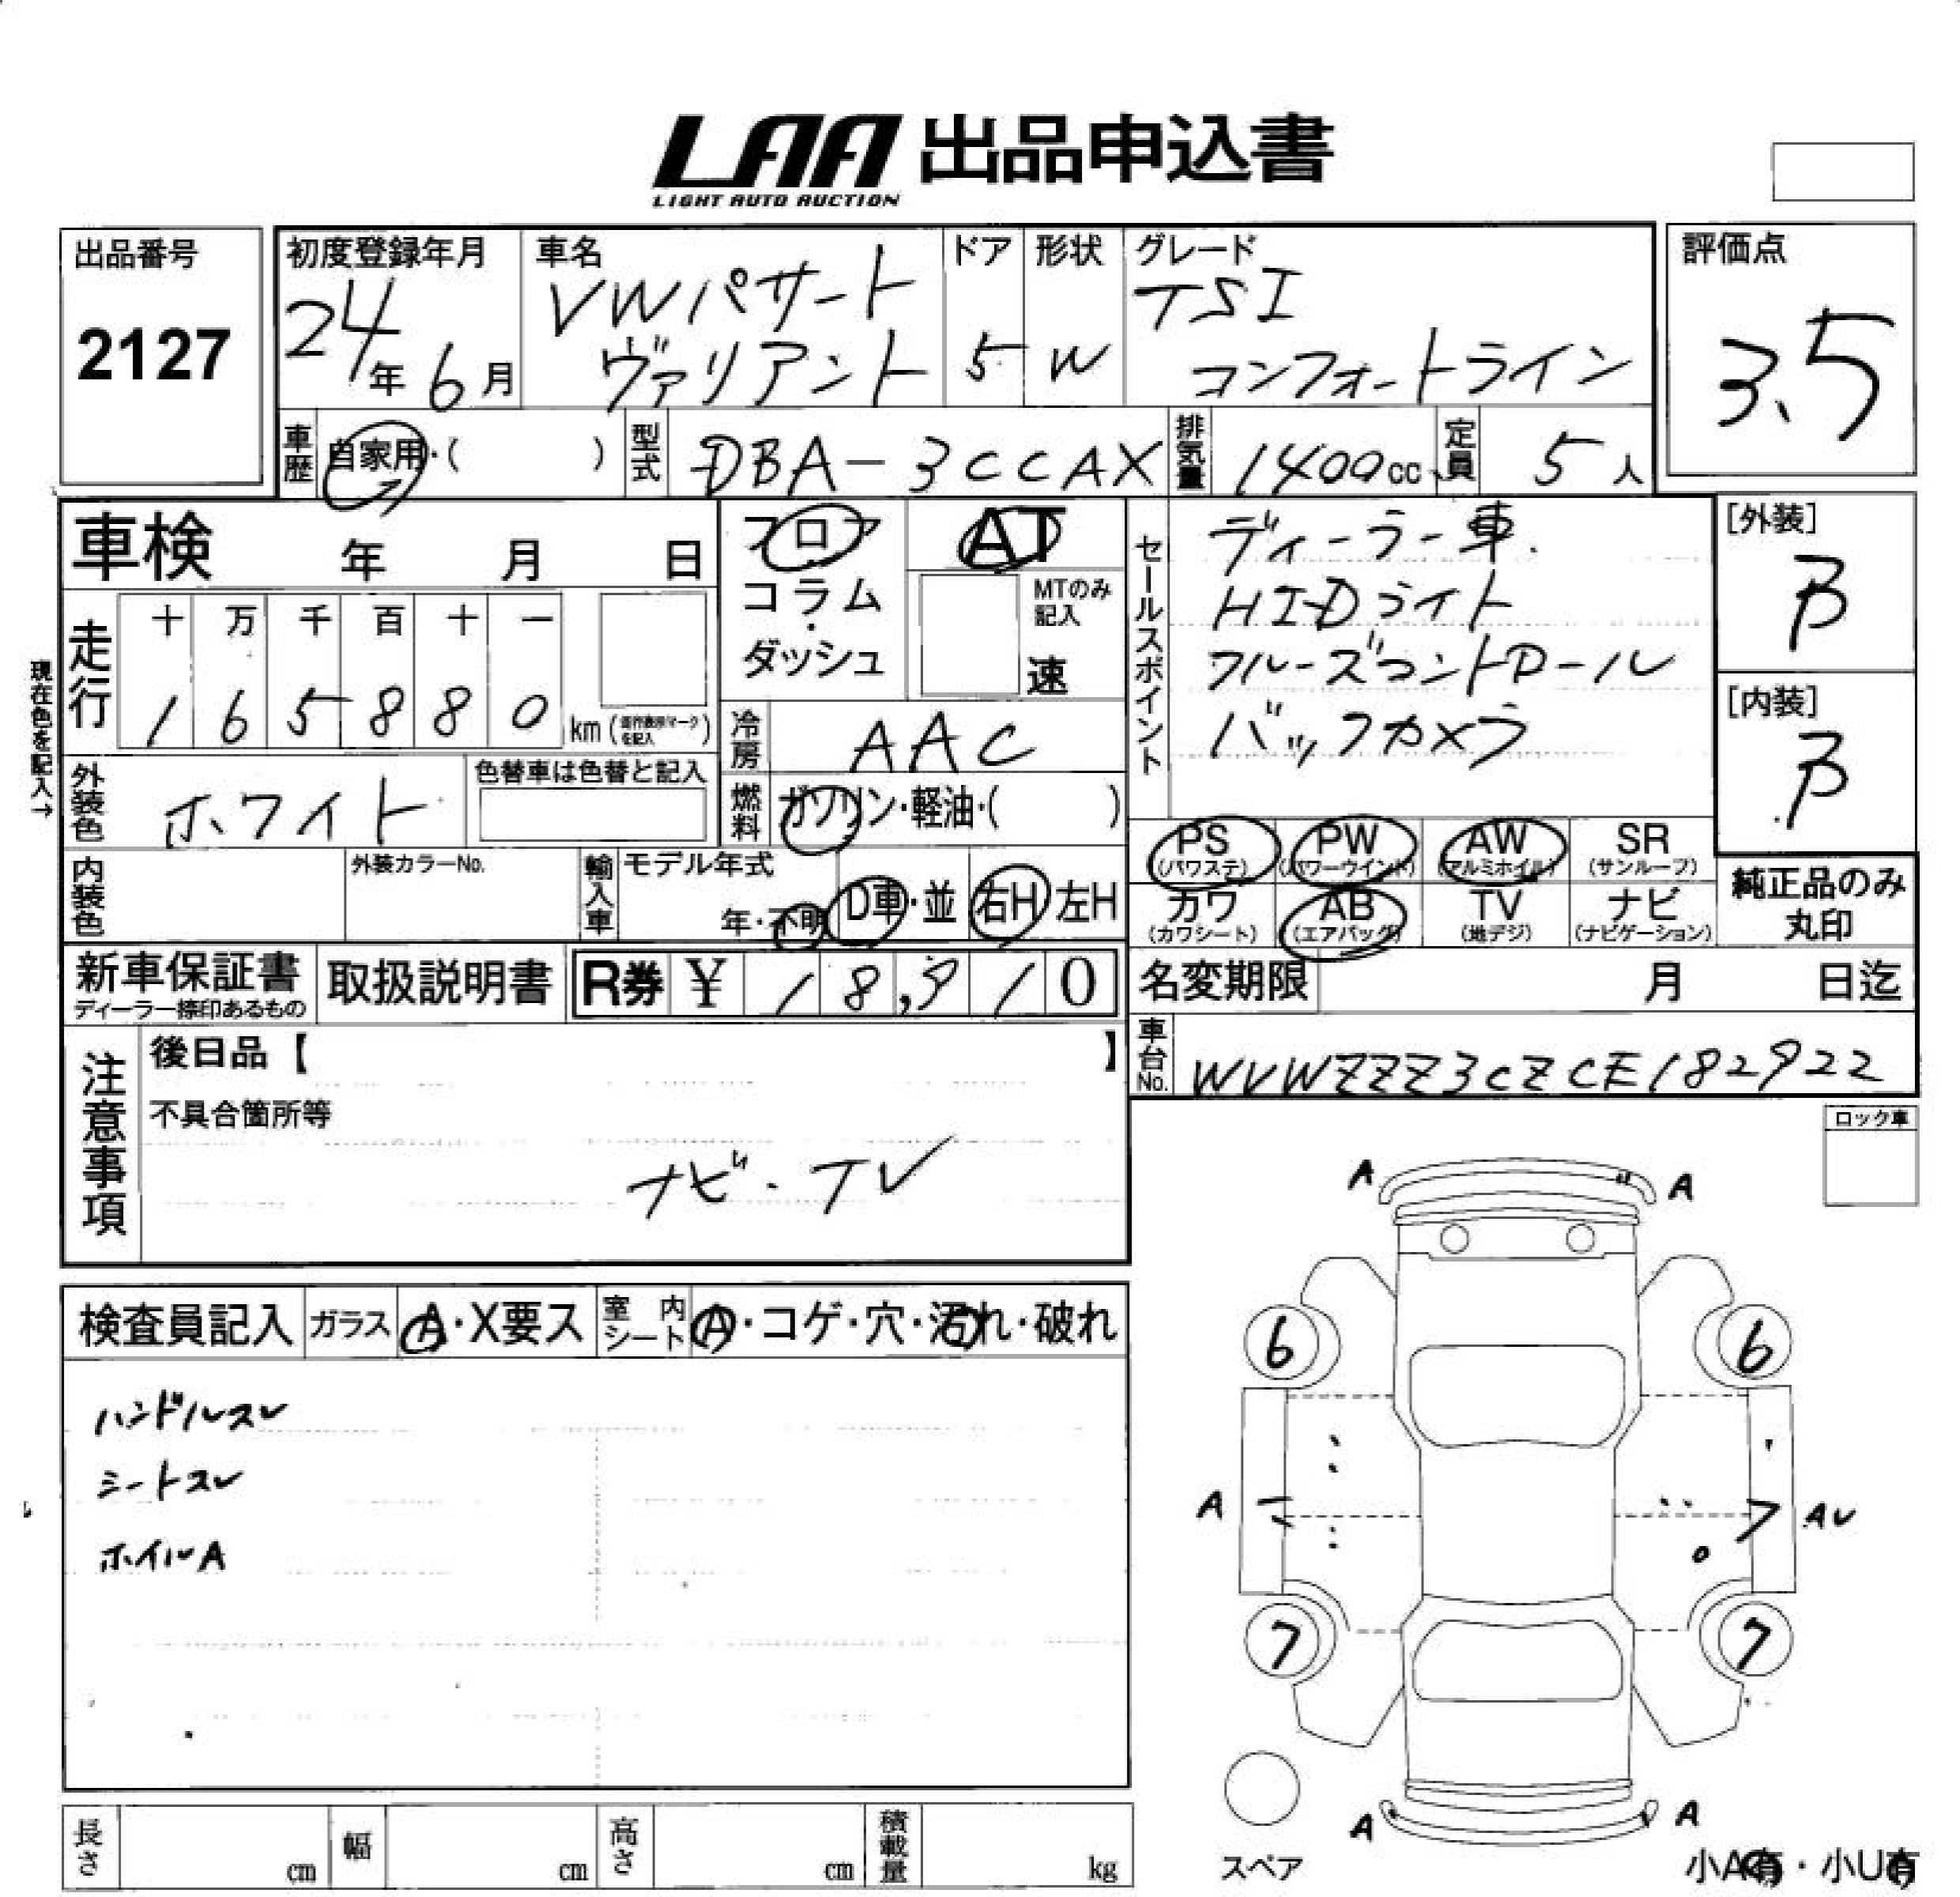 LAA 出品申込書
LIGHT AUTO AUCTION
出品番号
2127
初度登録年月
24年6月
車名
VWパサート
ヴァリアント
ドア
5
形状
W
グレード
TSI
コンフォートライン
評価点
3.5
車歴
自家用・( )
型式
DBA-3CCAX
排気量
1400cc
定員
5人
車検 年 月 日
フロア
コラム
・
ダッシュ
AT
MTのみ
記入
速
セールスポイント
ディーラー車.
HIDライト
クルーズコントロール
バックカメラ
[外装]
B
[内装]
B
現在色を記入→
走行
十 万 千 百 十 一
1 6 5 8 8 0 km
冷房
AAC
外装色
ホワイト
色替車は色替と記入
燃料
ガソリン・軽油・( )
PS
(パワステ)
PW
(パワーウインド)
AW
(アルミホイル)
SR
(サンルーフ)
カワ
(カワシート)
AB
(エアバッグ)
TV
(地デジ)
ナビ
(ナビゲーション)
純正品のみ
丸印
内装色
外装カラーNo.
輸入車
モデル年式
年・不明
D車・並
右H 左H
新車保証書
ディーラー捺印あるもの
取扱説明書
R券 ¥ 18,910
名変期限 月 日迄
車台No.
WVWZZZ3CZCE182922
注意事項
後日品【 】
不具合箇所等
ナビ.TV
ロック車
検査員記入
ガラス
A・X要ス
室内シート
A・コゲ・穴・汚れ・破れ
ハンドルスレ
シートスレ
ホイルA
A A
6 6
A AU
7 7
A A
スペア
小A有・小U有
長さ cm
幅 cm
高さ cm
積載量 kg